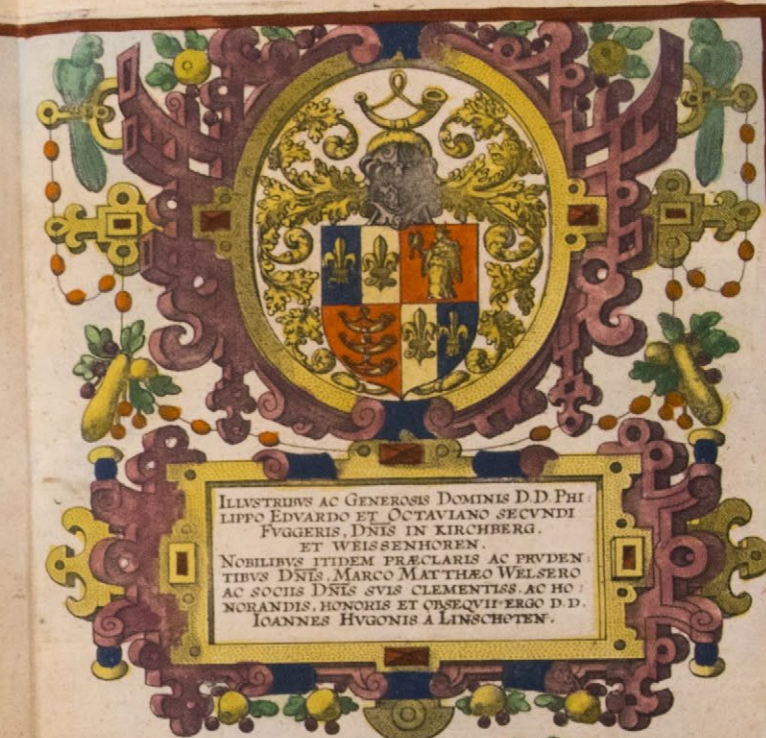 ILLVSTRIBVS AC GENEROSIS DOMINIS D.D. PHI:
LIPPO EDVARDO ET OCTAVIANO SECVNDI
FVGGERIS, DNĪS IN KIRCHBERG.
ET WEISSENHOREN.
NOBILIBVS ITIDEM PRÆCLARIS AC PRVDEN:
TIBVS DNĪS. MARCO MATTHÆO WELSERO
AC SOCIIS DNĪS SVIS CLEMENTISS. AC HO:
NORANDIS, HONORIS ET OBSEQVII ERGO D.D.
IOANNES HVGONIS A LINSCHOTEN.